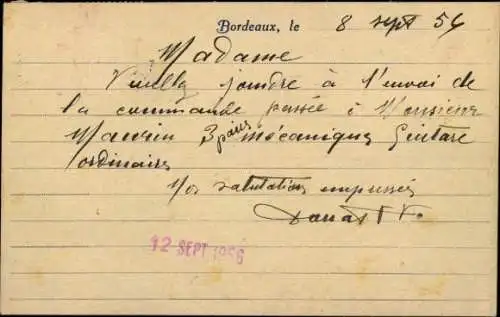 Bordeaux, le 8 sept 56
Madame
Veuillez joindre à l'envoi de
la commande passée à Monsieur
Maurin 3 paires mécaniques Guitare
ordinaires
Nos salutations empressées
12 SEPT 1956